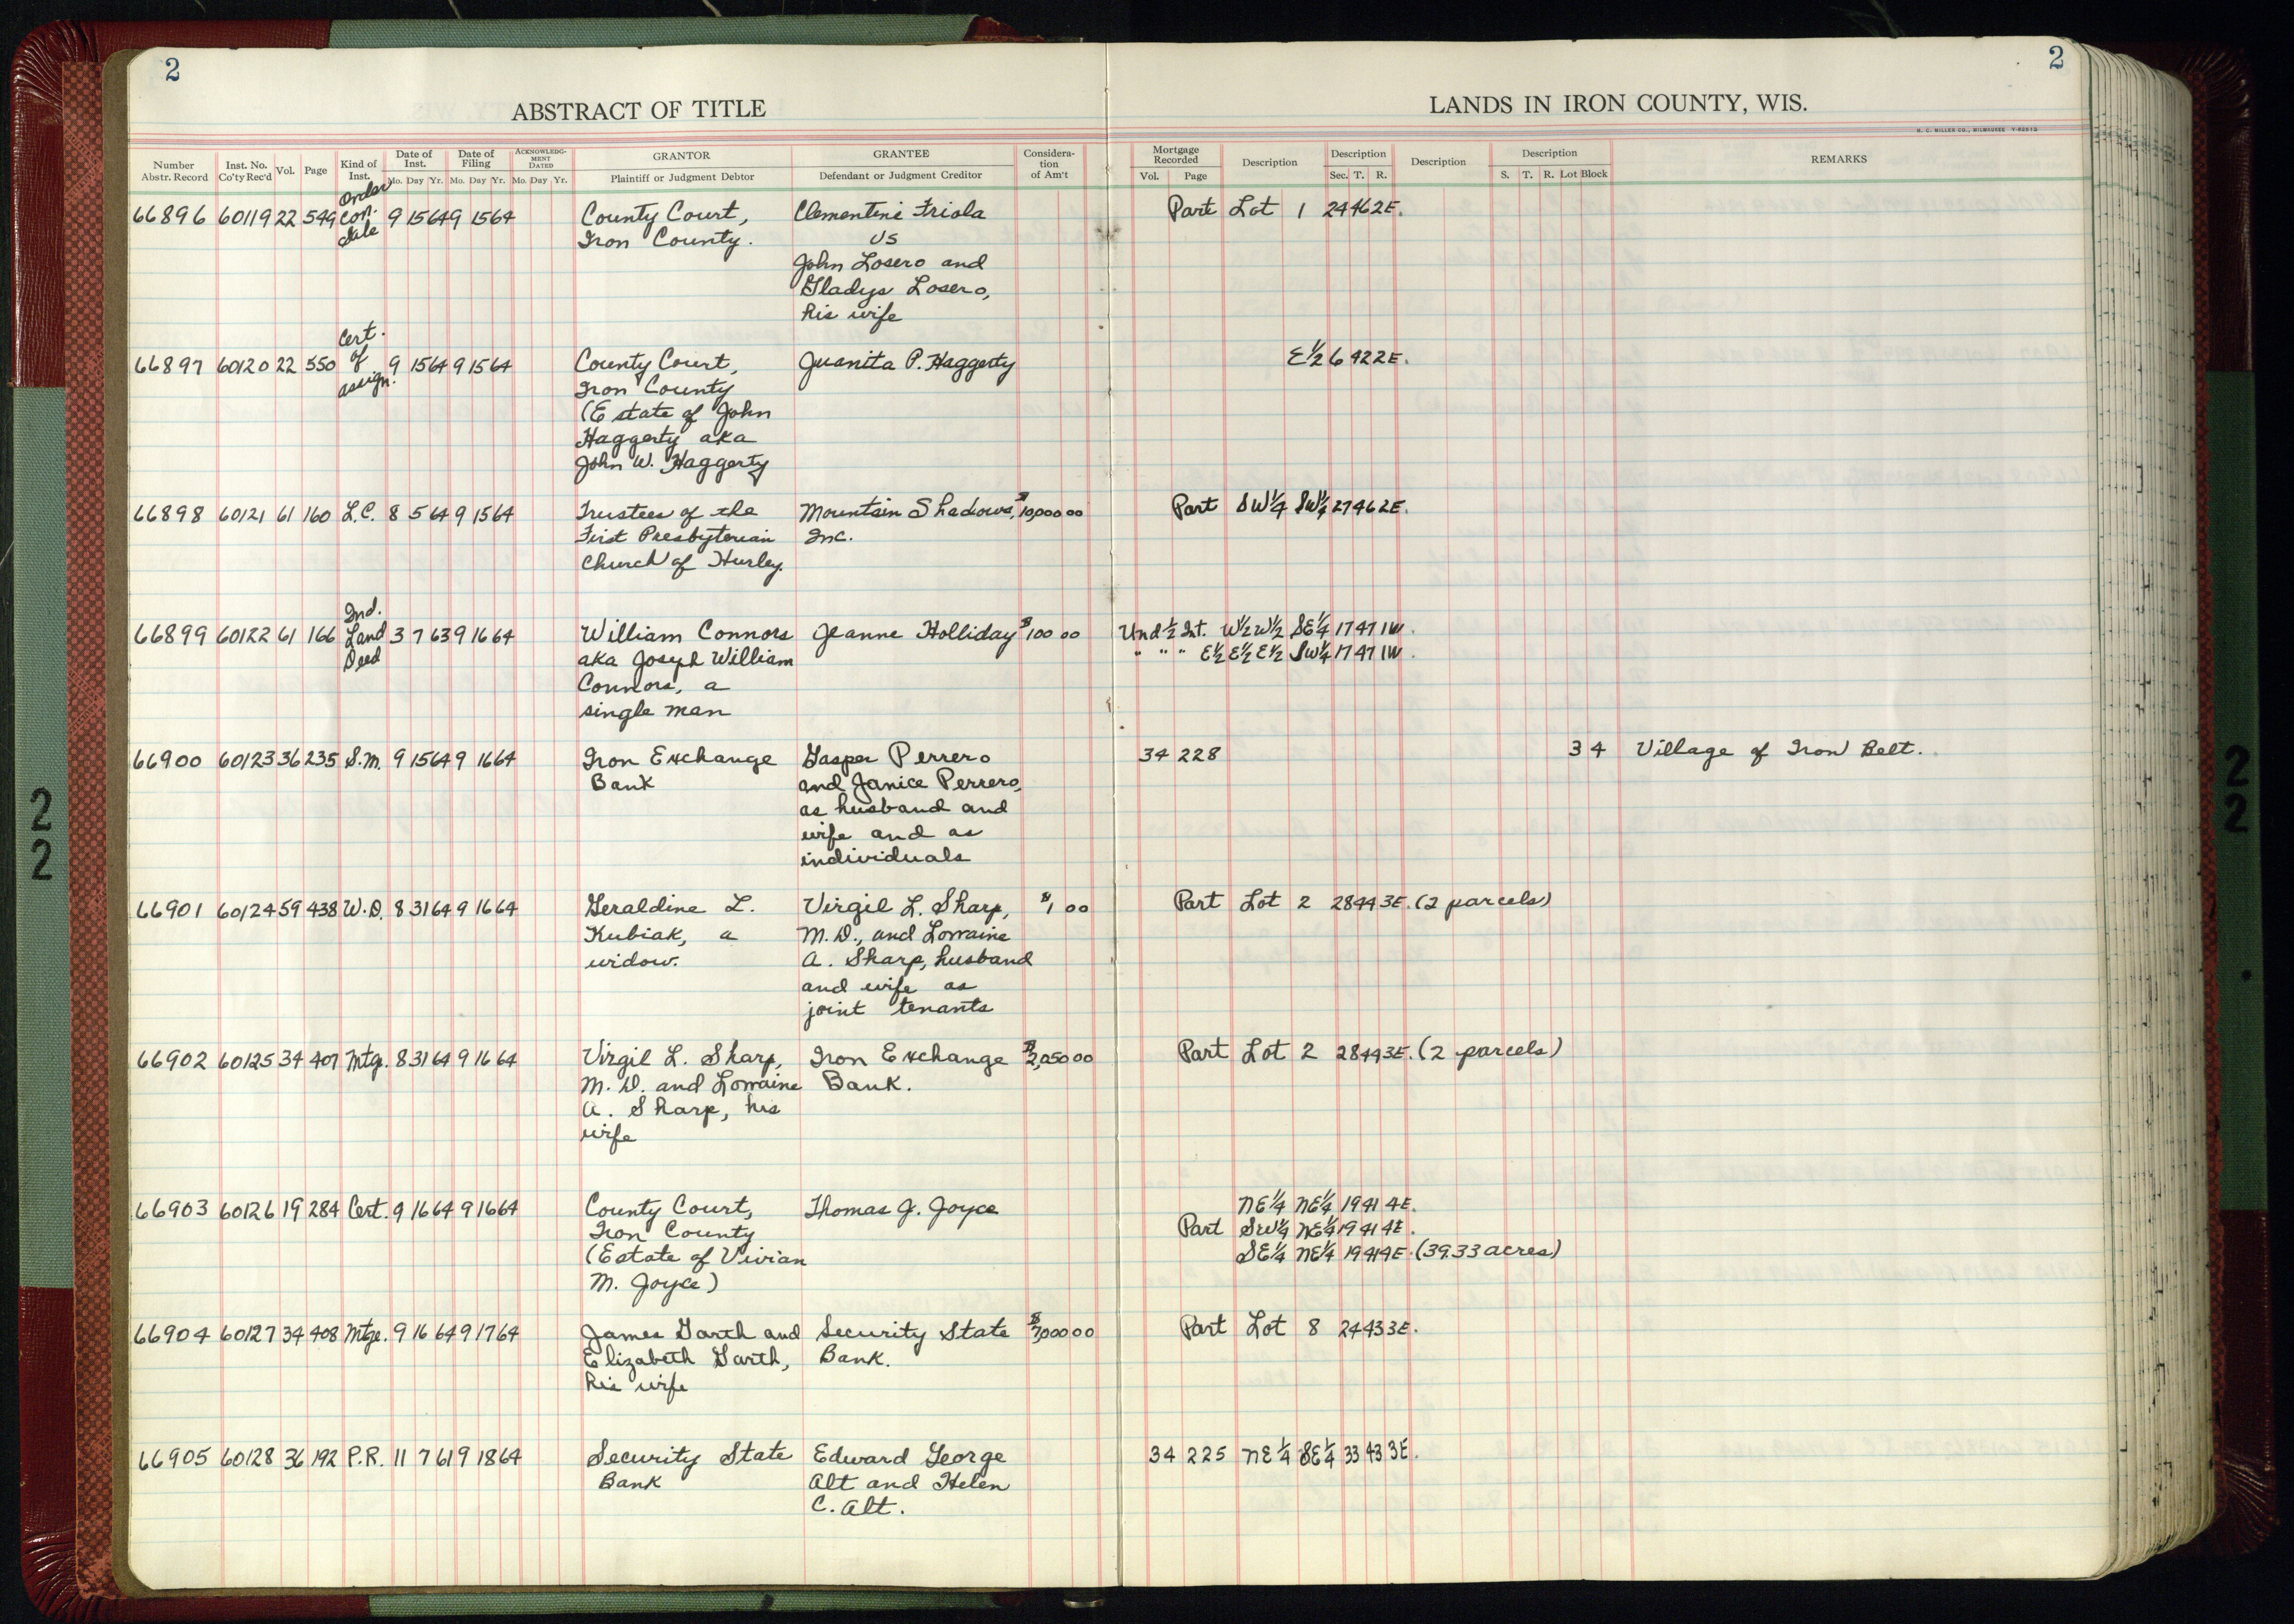 2
2
ABSTRACT OF TITLE
LANDS IN IRON COUNTY, WIS.
H. C. MILLER CO., MILWAUKEE
Number Abstr. Record
Inst. No. Co'ty Rec'd
Vol.
Page
Kind of Inst.
Date of Inst.
Mo. Day Yr.
Date of Filing
Mo. Day Yr.
ACKNOWLEDGMENT DATED
Mo. Day Yr.
GRANTOR
Plaintiff or Judgment Debtor
GRANTEE
Defendant or Judgment Creditor
Considera-
tion
of Am't
Mortgage Recorded
Vol. Page
Description
Description
Sec. T. R.
Description
Description
S. T. R. Lot Block
REMARKS
Order
66896 60119 22 549 Con. 9 15 64 9 15 64 County Court, Clementine Friola Part Lot 1 24 46 2E.
Sale Iron County. vs
John Losero and
Gladys Losero,
his wife
Cert.
66897 60120 22 550 of 9 15 64 9 15 64 County Court, Juanita P. Haggerty E½ 6 42 2E.
assign. Iron County
(Estate of John
Haggerty aka
John W. Haggerty
66898 60121 61 160 L.C. 8 5 64 9 15 64 Trustees of the Mountain Shadows, $10,000 00 Part SW¼ SW¼ 27 46 2E.
First Presbyterian Inc.
Church of Hurley.
Ind.
66899 60122 61 166 Land 3 7 63 9 16 64 William Connors Jeanne Holliday $100 00 Und ½ Int. W½ W½ SE¼ 17 47 1W.
Deed aka Joseph William " " " E½ E½ E½ SW¼ 17 47 1W.
Connors, a
single man
66900 60123 36 235 S.M. 9 15 64 9 16 64 Iron Exchange Gasper Perrero 34 228 3 4 Village of Iron Belt.
Bank and Janice Perrero,
as husband and
wife and as
individuals
66901 60124 59 438 W.D. 8 31 64 9 16 64 Geraldine L. Virgil L. Sharp, $1 00 Part Lot 2 28 44 3E. (2 parcels)
Kubiak, a M.D., and Lorraine
widow. A. Sharp, husband
and wife as
joint tenants
66902 60125 34 407 Mtg. 8 31 64 9 16 64 Virgil L. Sharp, Iron Exchange $2,050 00 Part Lot 2 28 44 3E. (2 parcels)
M.D. and Lorraine Bank.
A. Sharp, his
wife
66903 60126 19 284 Cert. 9 16 64 9 16 64 County Court, Thomas J. Joyce NE¼ NE¼ 19 41 4E.
Iron County Part SW¼ NE¼ 19 41 4E.
(Estate of Vivian SE¼ NE¼ 19 41 4E. (39.33 acres)
M. Joyce)
66904 60127 34 408 Mtge. 9 16 64 9 17 64 James Garth and Security State $7,000 00 Part Lot 8 24 43 3E.
Elizabeth Garth, Bank.
his wife
66905 60128 36 192 P.R. 11 7 61 9 18 64 Security State Edward George 34 225 NE¼ SE¼ 33 43 3E.
Bank Alt and Helen
C. Alt.
2
2
2
2